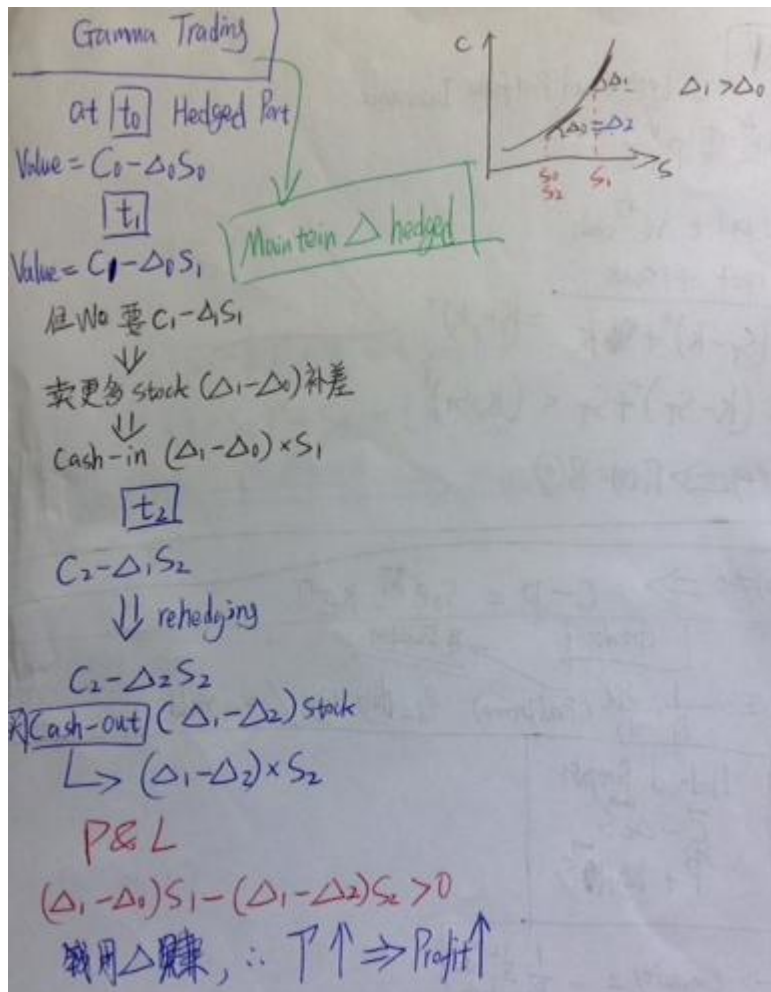 Gamma Trading
at t₀ Hedged Port
Value = C₀-Δ₀S₀
t₁
Value = C₁-Δ₀S₁
Maintein Δ hedged
但We 要 C₁-Δ₁S₁
⇓
卖更多 stock (Δ₁-Δ₀) 补差
⇓
Cash-in (Δ₁-Δ₀)×S₁
t₂
C₂-Δ₁S₂
⇓ rehedging
C₂-Δ₂S₂
买 Cash-out (Δ₁-Δ₂) Stock
↳ (Δ₁-Δ₂)×S₂
P&L
(Δ₁-Δ₀)S₁-(Δ₁-Δ₂)S₂>0
用Δ赚, ∴ Γ↑ ⇒ Profit↑
C
Δ₁
Δ₁>Δ₀
Δ₀=Δ₂
S₀ S₁ S
S₂